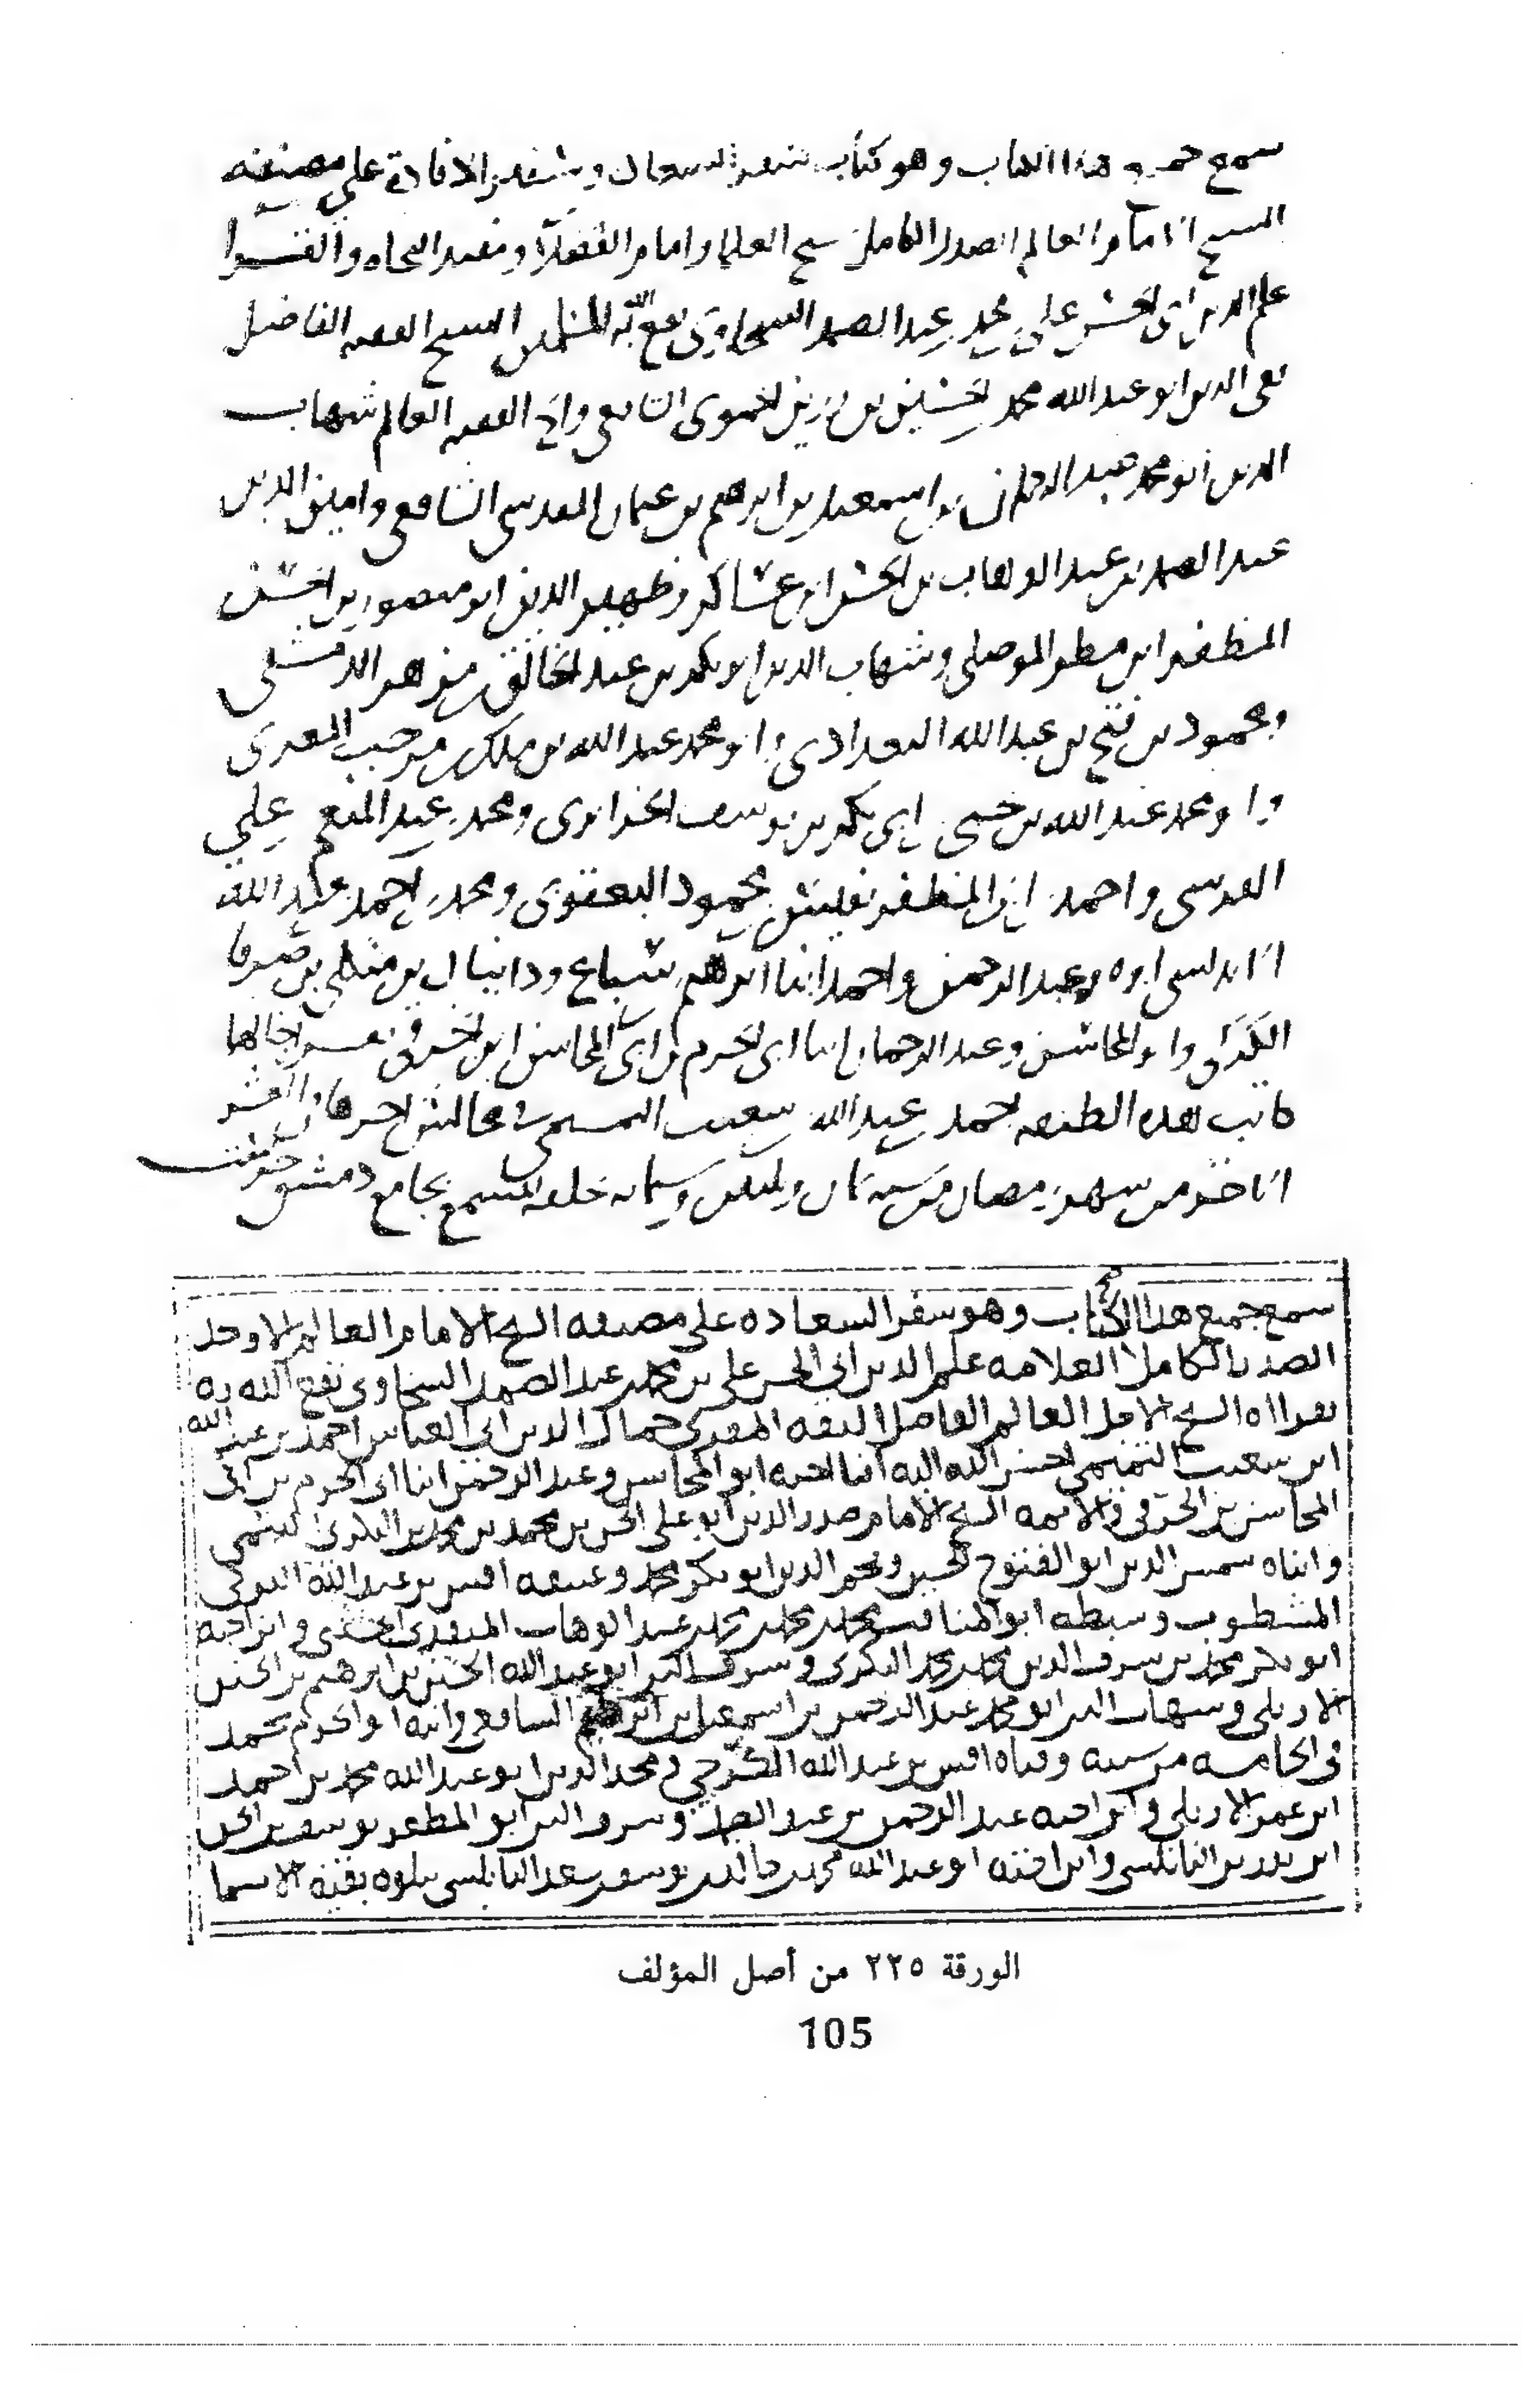 سمع جميع هذا الكتاب وهو كتاب سفر السعادة وسفير الافادة على مصنفه
الشيخ الامام العالم الصدر الكامل شيخ العلماء وامام الفضلاء ومفيد النحاه والقراء
علم الدين ابي الحسن علي بن محمد بن عبد الصمد السخاوي نفع الله به المسلمين الشيخ الفقيه الفاضل
تقي الدين ابو عبد الله محمد بن الحسين بن رزين الحموي الشافعي والفقيه العالم شهاب
الدين ابو محمد عبد الرحمان بن اسمعيل بن ابرهيم بن عثمان المقدسي الشافعي وامين الدين
عبد الصمد بن عبد الوهاب بن الحسن ابن عساكر وظهير الدين ابو منصور بن الحسن
المظفر ابن مطر الموصلي وشهاب الدين ابو بكر بن عبد الخالق بن مزهر الدمشقي
ومحمود بن فتح بن عبد الله البغدادي وابو محمد عبد الله بن ملك بن مرحب المعري
وابو محمد عبد الله بن ابي بكر بن يوسف ومحمد بن عبد المنعم علي
المقدسي واحمد ابن المظفر محمود البعقوبي ومحمد بن احمد عبد الله
الاندلسي وعبد الرحمن واحمد ابنا ابرهيم شباع ودانيال بن منكلي بن صرفا
الكركي وابو المحاسن وعبد الرحمان ابنا ابي الحرم بن ابي المحاسن ابن الخرقي
كاتب هذه الطبقه احمد عبد الله بن شعيب التميمي في مجالس اخرها العشر
الاخر من شهر رمضان من سنه ثمان وثلثين وستمايه بحلقه المسمع بجامع دمشق
سمع جميع هذا الكتاب وهو سفر السعاده على مصنفه الشيخ الامام العالم الاوحد
الصدر الكامل العلامه علم الدين ابي الحسن علي بن محمد بن عبد الصمد السخاوي نفع الله به
بقراءه الشيخ الاجل العالم الفاضل الثقه المقري جمال الدين ابي العباس احمد بن عبد الله
ابن شعيب التميمي احسن الله اليه ابو المحاسن وعبد الرحمن ابنا ابي الحرم بن ابي
المحاسن بن الخرقي والايمه الشيخ الامام صدر الدين ابو علي الحسن بن محمد بن محمد بن البكري التيمي
وابناه شمس الدين ابو الفتوح الحسين ونجم الدين ابو بكر محمد وعتيقه اقس بن عبد الله التركي
المشطوب وسبطه ابو المناقب محمد بن محمد بن محمد عبد الوهاب الحسني وابن اخيه
ابو بكر محمد بن شرف الدين محمد بن محمد البكري وشرف الدين ابو عبد الله الحسين بن ابرهيم بن الحسين
الاربلي وشهاب الدين ابو محمد عبد الرحمن بن اسمعيل بن ابرهيم الشافعي وابنه ابو الحرم محمد
في الخامسه من سنه وفتاه اقس بن عبد الله الكرجي ومجد الدين ابو عبد الله محمد بن احمد
ابن عمر الاربلي وابن اخيه عبد الرحمن بن عبد الصمد وشرف الدين ابو المظفر يوسف بن الحسن
ابن بدر بن النابلسي وابن اخته ابو عبد الله محمد بن يوسف بن سعد النابلسي يتلوه بقيه الاسما
الورقة ٢٢٥ من أصل المؤلف
105